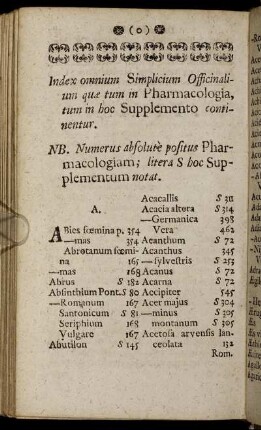 (o)
Index omnium Simplicium Officinali-
um quæ tum in Pharmacologia,
tum in hoc Supplemento conti-
nentur.
NB. Numerus absolutè positus Phar-
macologiam; litera S hoc Sup-
plementum notat.
A.
ABies fœmina p. 354
—mas 354
Abrotanum fœmi-
na 165
—mas 168
Abrus S 182
Absinthium Pont. S 80
—Romanum 167
Santonicum S 81
Seriphium 168
Vulgare 167
Abutilon S 145
Acacallis S 311
Acacia altera S 314
—Germanica 398
Vera 462
Acanthium S 72
Acanthus 345
—sylvestris S 253
Acanus S 72
Acarna S 72
Accipiter 545
Acer majus S 304
—minus S 305
montanum S 305
Acetosa arvensis lan-
ceolata 132
Rom.